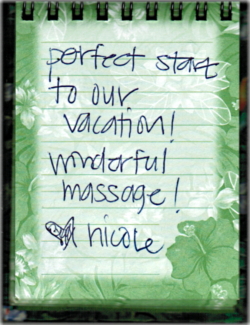 perfect start
to our
vacation!
wonderful
massage!
nicole